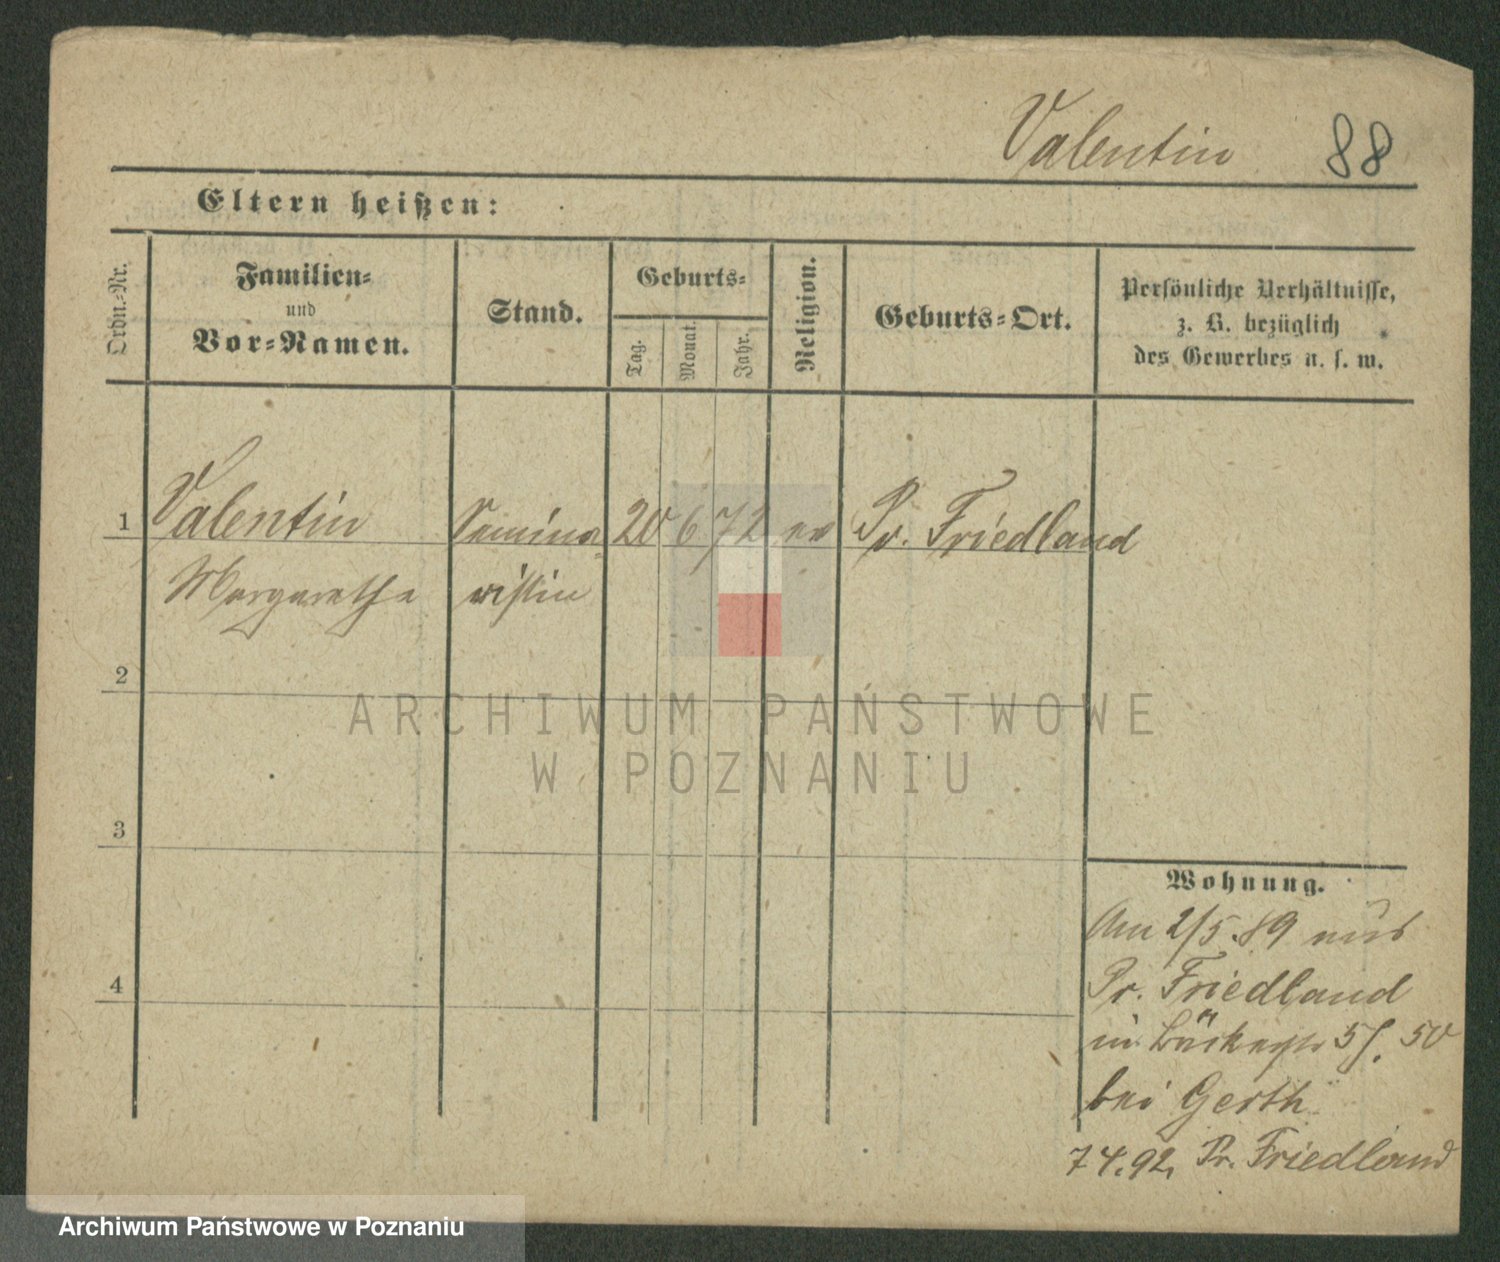 Valentin 88
Eltern heißen:
Ordn.-Nr.
Familien-
und
Vor-Namen.
Stand.
Geburts-
Tag.
Monat.
Jahr.
Religion.
Geburts-Ort.
Persönliche Verhältnisse,
z. B. bezüglich
des Gewerbes u. s. w.
1 Valentin Semina 20 6 72 ev Pr. Friedland
Margarethe ristin
2
3
4
Wohnung.
Am 2/5.89 aus
Pr. Friedland
in 50
bei Gerth
7 4.92, Pr. Friedland
ARCHIWUM PAŃSTWOWE
W POZNANIU
Archiwum Państwowe w Poznaniu